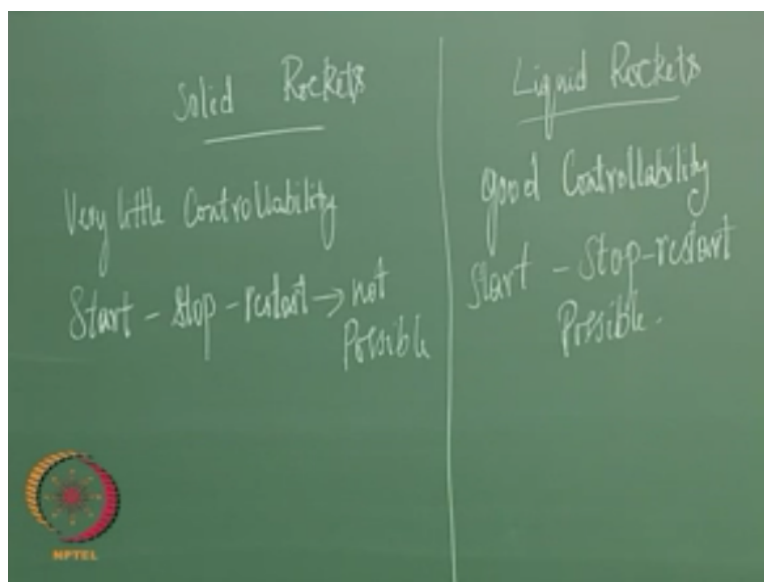 Solid Rockets
Very little Controllability
Start - Stop - restart → not
Possible
Liquid Rockets
good Controllability
Start - Stop - restart
Possible.
NPTEL